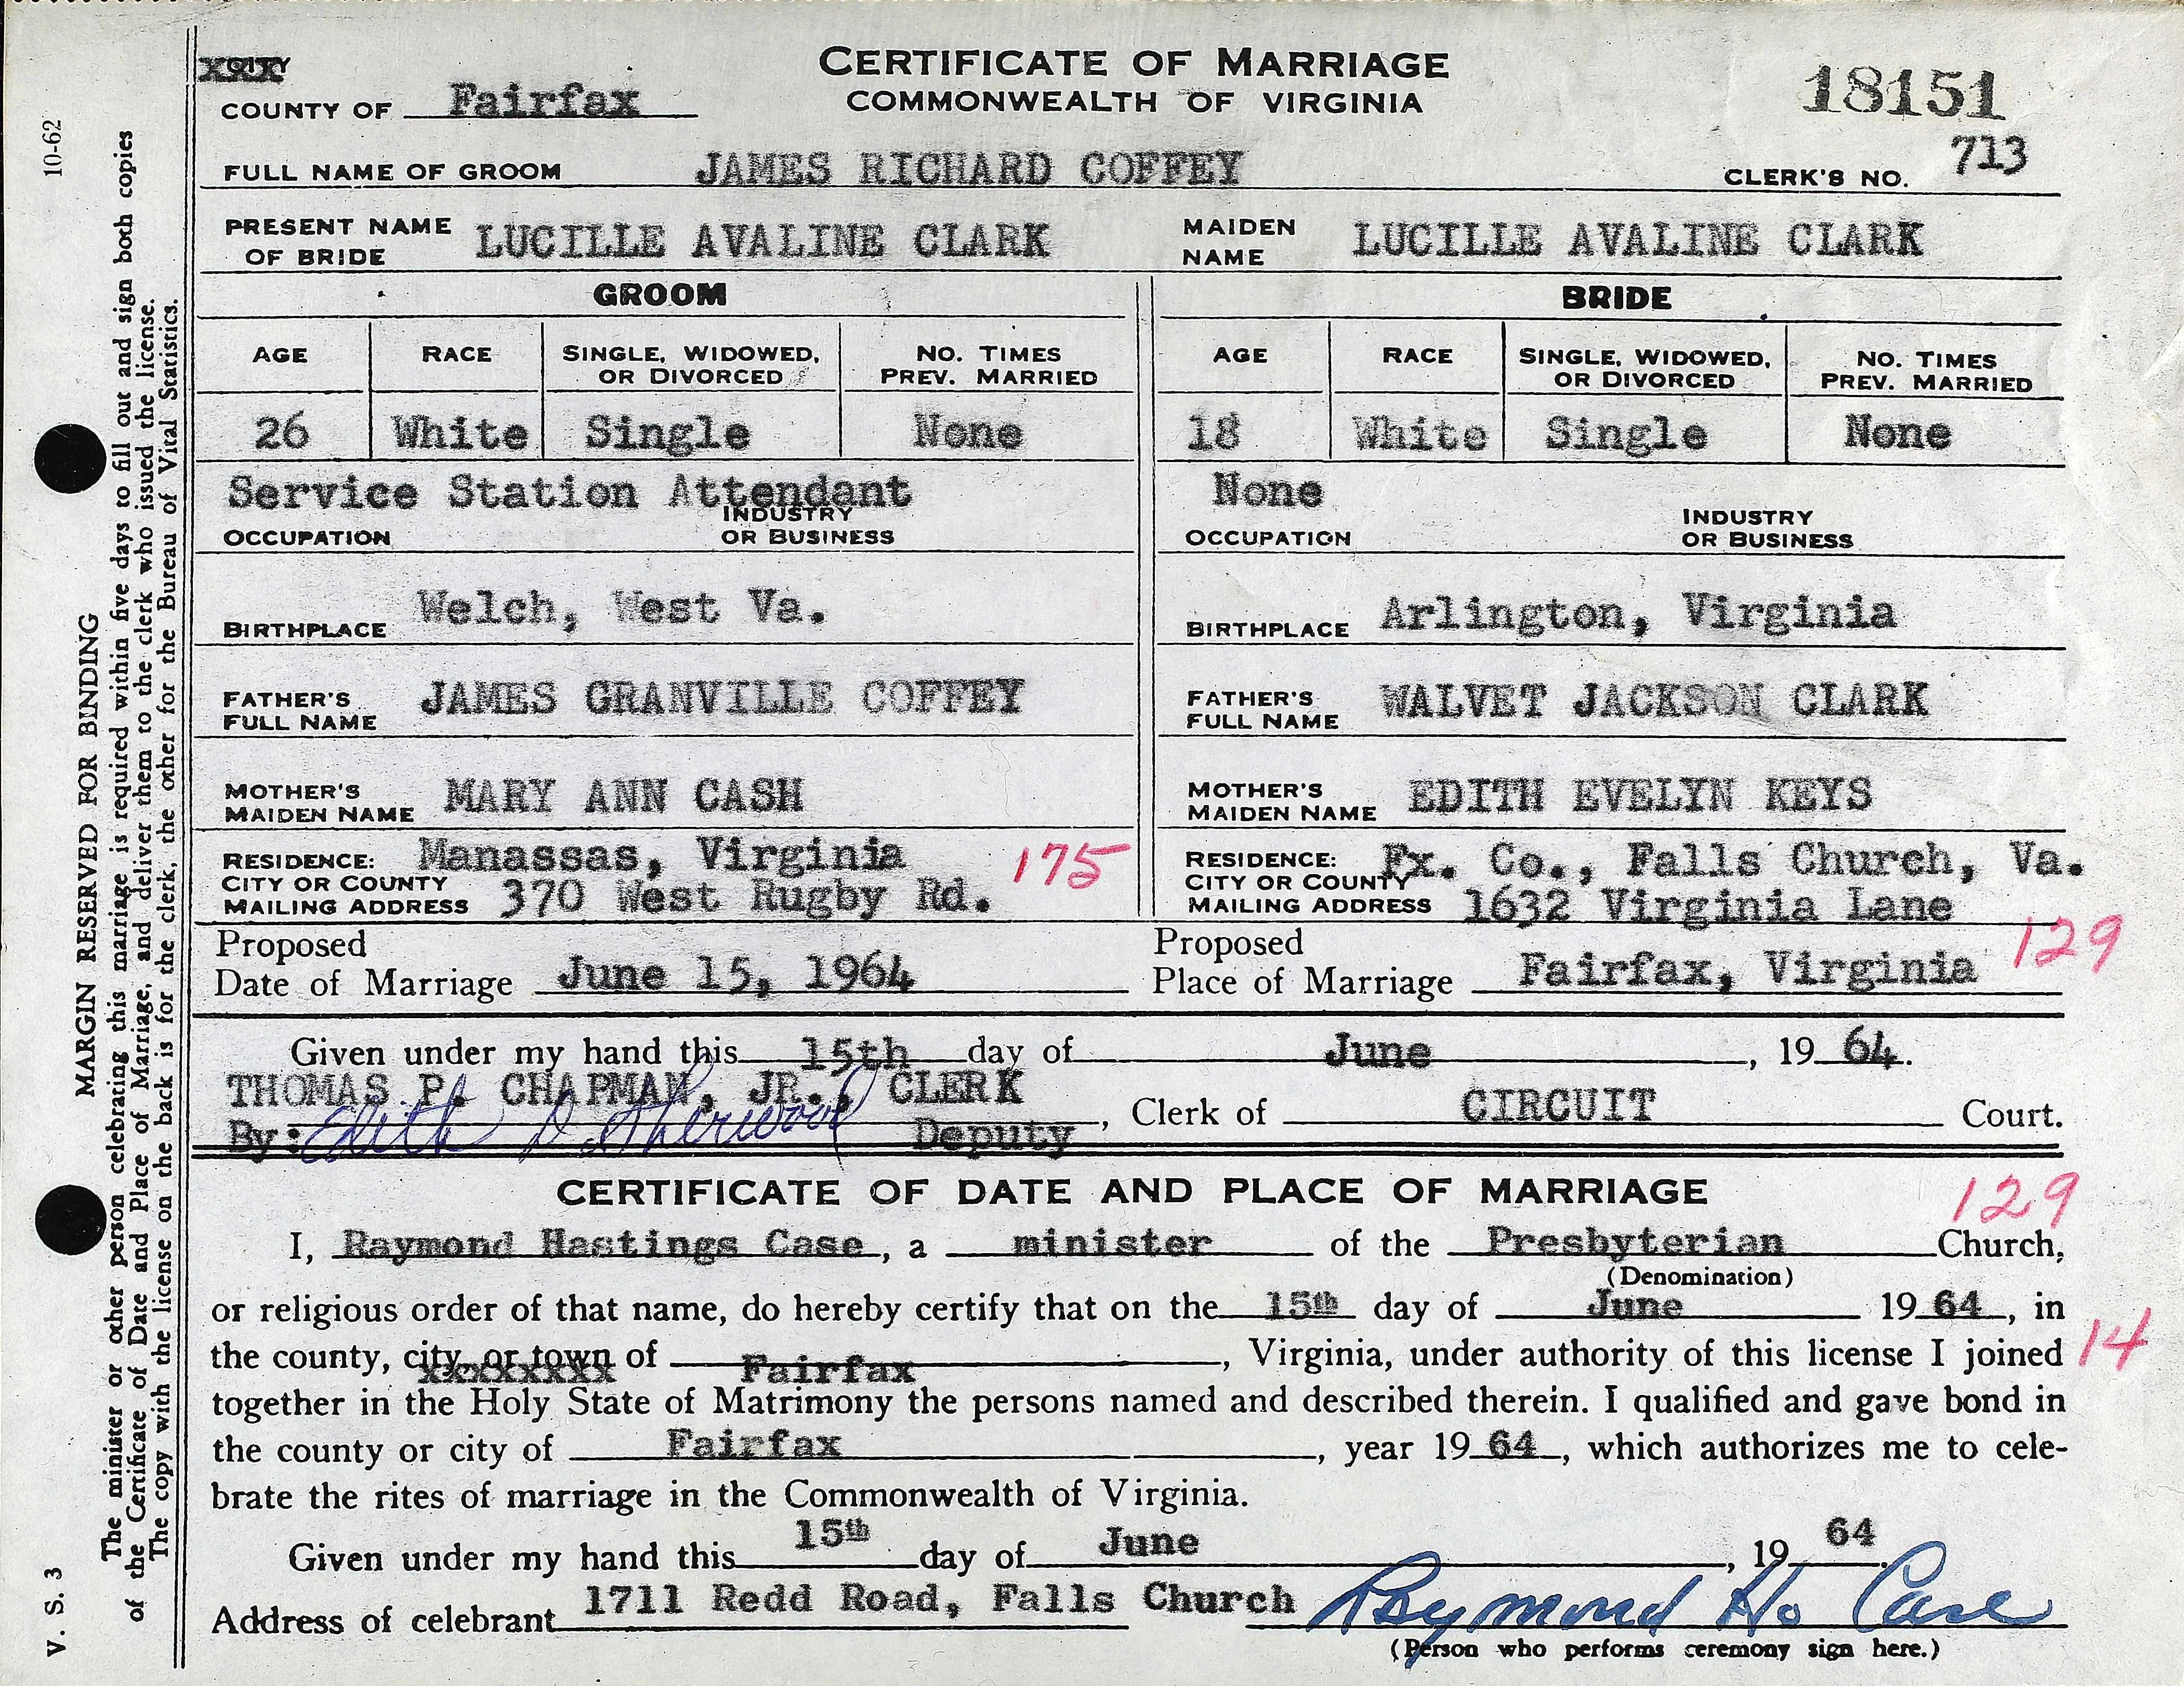 CITY
COUNTY OF Fairfax
CERTIFICATE OF MARRIAGE
COMMONWEALTH OF VIRGINIA
18151
FULL NAME OF GROOM JAMES RICHARD COFFEY CLERK'S NO. 713
PRESENT NAME OF BRIDE LUCILLE AVALINE CLARK MAIDEN NAME LUCILLE AVALINE CLARK
GROOM BRIDE
AGE RACE SINGLE, WIDOWED, OR DIVORCED NO. TIMES PREV. MARRIED AGE RACE SINGLE, WIDOWED, OR DIVORCED NO. TIMES PREV. MARRIED
26 White Single None 18 White Single None
Service Station Attendant None
OCCUPATION INDUSTRY OR BUSINESS OCCUPATION INDUSTRY OR BUSINESS
BIRTHPLACE Welch, West Va. BIRTHPLACE Arlington, Virginia
FATHER'S FULL NAME JAMES GRANVILLE COFFEY FATHER'S FULL NAME WALVET JACKSON CLARK
MOTHER'S MAIDEN NAME MARY ANN CASH MOTHER'S MAIDEN NAME EDITH EVELYN KEYS
RESIDENCE: CITY OR COUNTY Manassas, Virginia 175 RESIDENCE: CITY OR COUNTY Fx. Co., Falls Church, Va.
MAILING ADDRESS 370 West Rugby Rd. MAILING ADDRESS 1632 Virginia Lane
129
Proposed Date of Marriage June 15, 1964 Proposed Place of Marriage Fairfax, Virginia
Given under my hand this 15th day of June, 19 64.
THOMAS P. CHAPMAN, JR., CLERK
By: Edith D Deputy, Clerk of CIRCUIT Court.
CERTIFICATE OF DATE AND PLACE OF MARRIAGE
129
I, Raymond Hastings Case, a minister of the Presbyterian Church,
(Denomination)
or religious order of that name, do hereby certify that on the 15th day of June 19 64, in
the county, city, or town of Fairfax, Virginia, under authority of this license I joined 14
together in the Holy State of Matrimony the persons named and described therein. I qualified and gave bond in
the county or city of Fairfax, year 19 64, which authorizes me to cele-
brate the rites of marriage in the Commonwealth of Virginia.
Given under my hand this 15th day of June, 19 64.
Address of celebrant 1711 Redd Road, Falls Church Raymond H. Case
(Person who performs ceremony sign here.)
10-62
MARGIN RESERVED FOR BINDING
V. S. 3
The minister or other person celebrating this marriage is required within five days to fill out and sign both copies
of the Certificate of Date and Place of Marriage, and deliver them to the clerk who issued the license.
The copy with the license on the back is for the clerk, the other for the Bureau of Vital Statistics.